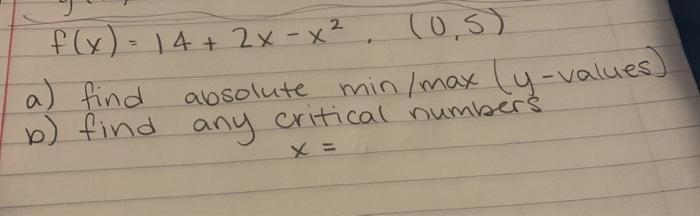 f(x) = 14 + 2x - x², (0,5)
a) find absolute min/max (y-values)
b) find any critical numbers
x =